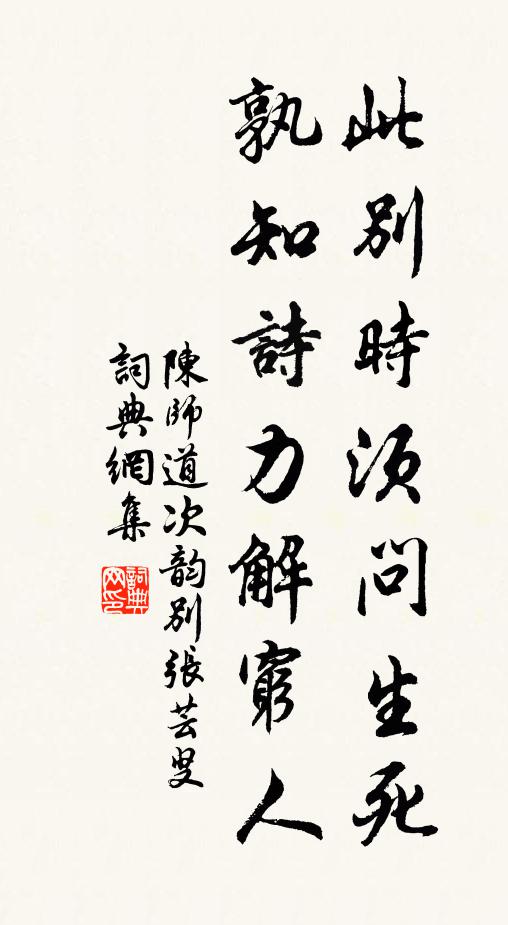 此別時須問生死
孰知詩力解窮人
陳師道次韵別張芸叟
詞典網集
詞典網印